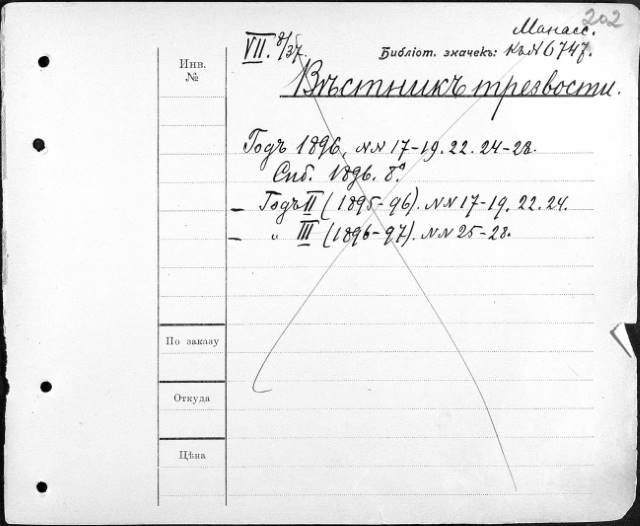 202
Манасс.
VII. 8/37.
Библіот. значекъ: къ № 6747.
Инв.
№
Вѣстникъ трезвости.
Годъ 1896, №№ 17-19. 22. 24-28.
Спб. 1896. 8°
— Годъ II (1895-96). №№ 17-19. 22. 24.
— „ III (1896-97). №№ 25-28.
По заказу
Откуда
Цѣна